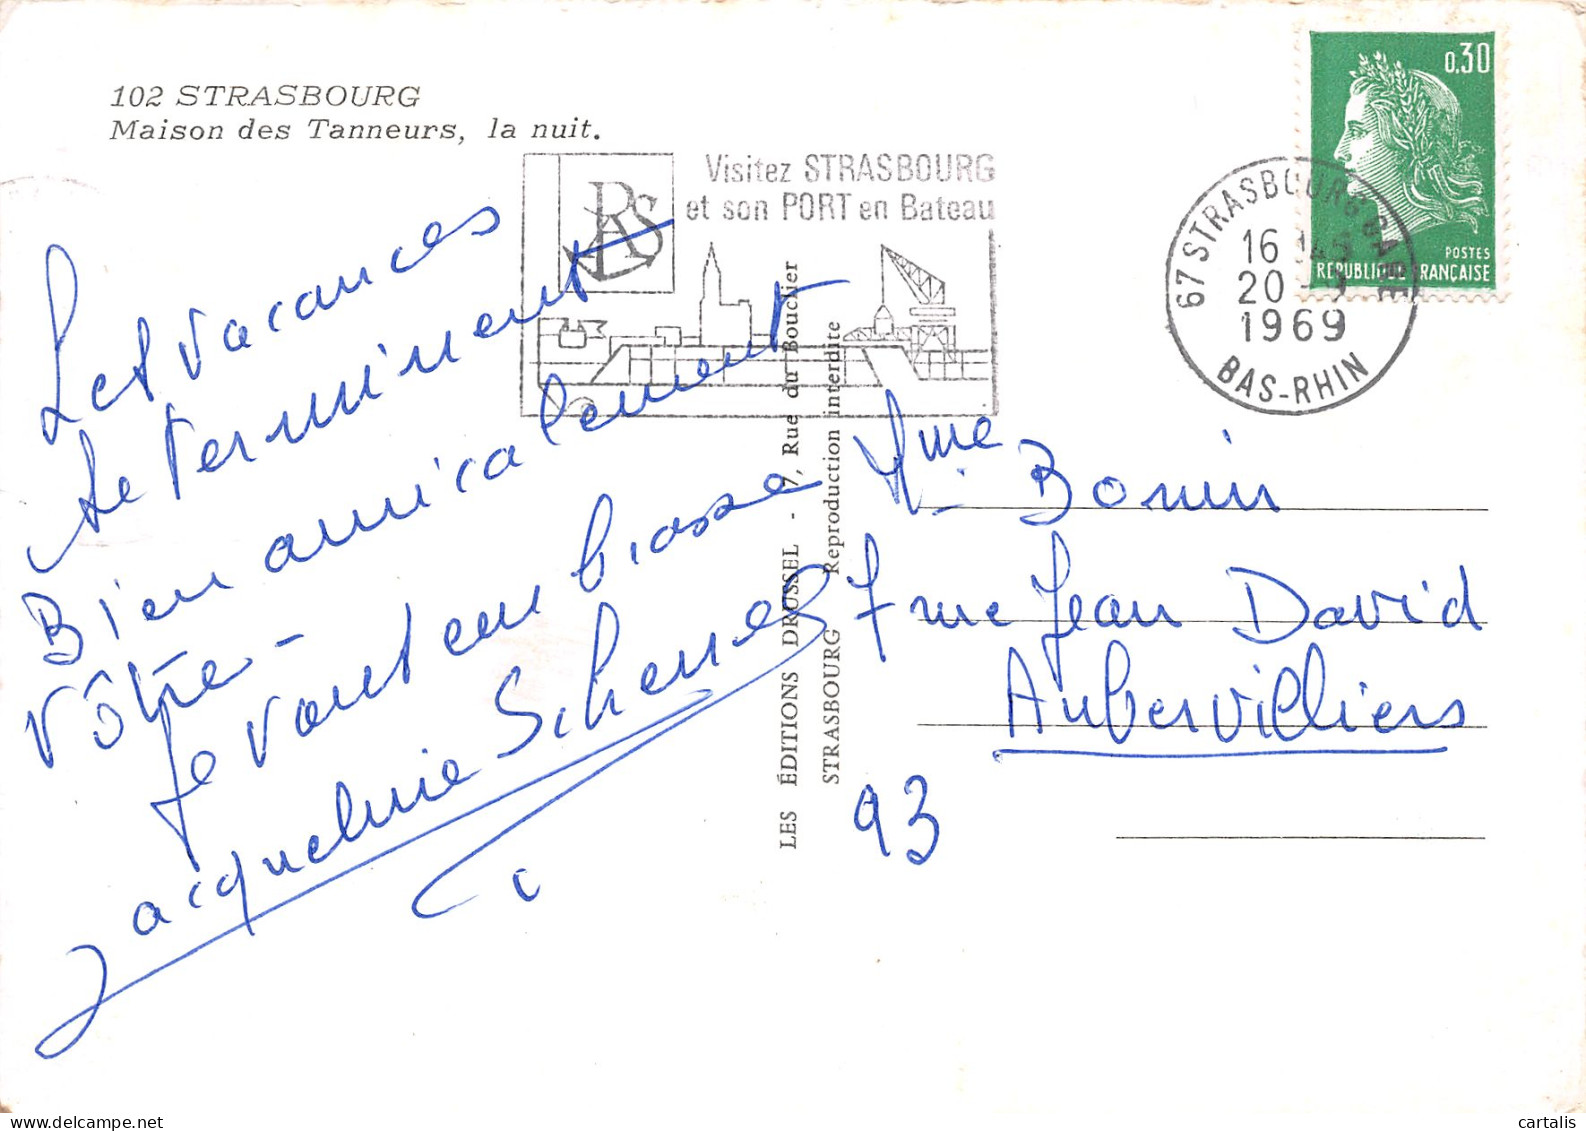 102 STRASBOURG
Maison des Tanneurs, la nuit.
Visitez STRASBOURG
et son PORT en Bateau
PAS
0,30
POSTES
REPUBLIQUE FRANCAISE
67 STRASBOURG GARE
16
20
1969
BAS-RHIN
Les vacances
se terminent
Bien amicalement
Vôtre -
Je vous embrasse
Jacqueline
LES ÉDITIONS DRUSSEL - 7, Rue du Bouclier
STRASBOURG Reproduction interdite
Mme Bonin
7 rue Jean David
Aubervilliers
93
delcampe.net
cartalis